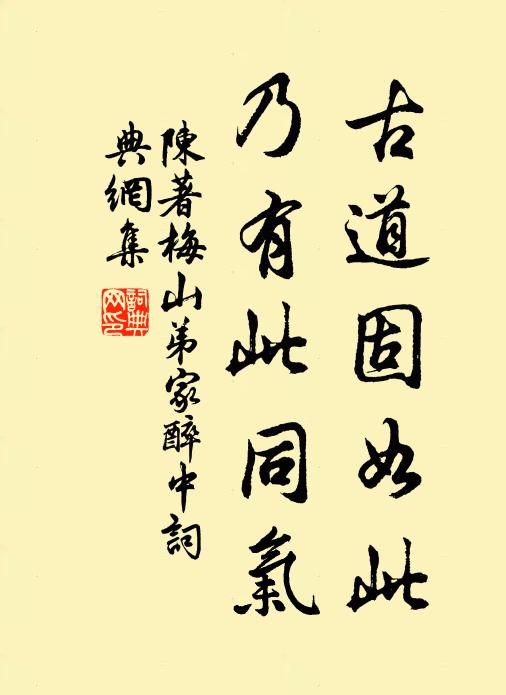 古道固如此
乃有此同氣
陳著梅山弟家醉中詞
典網集
詞典網印